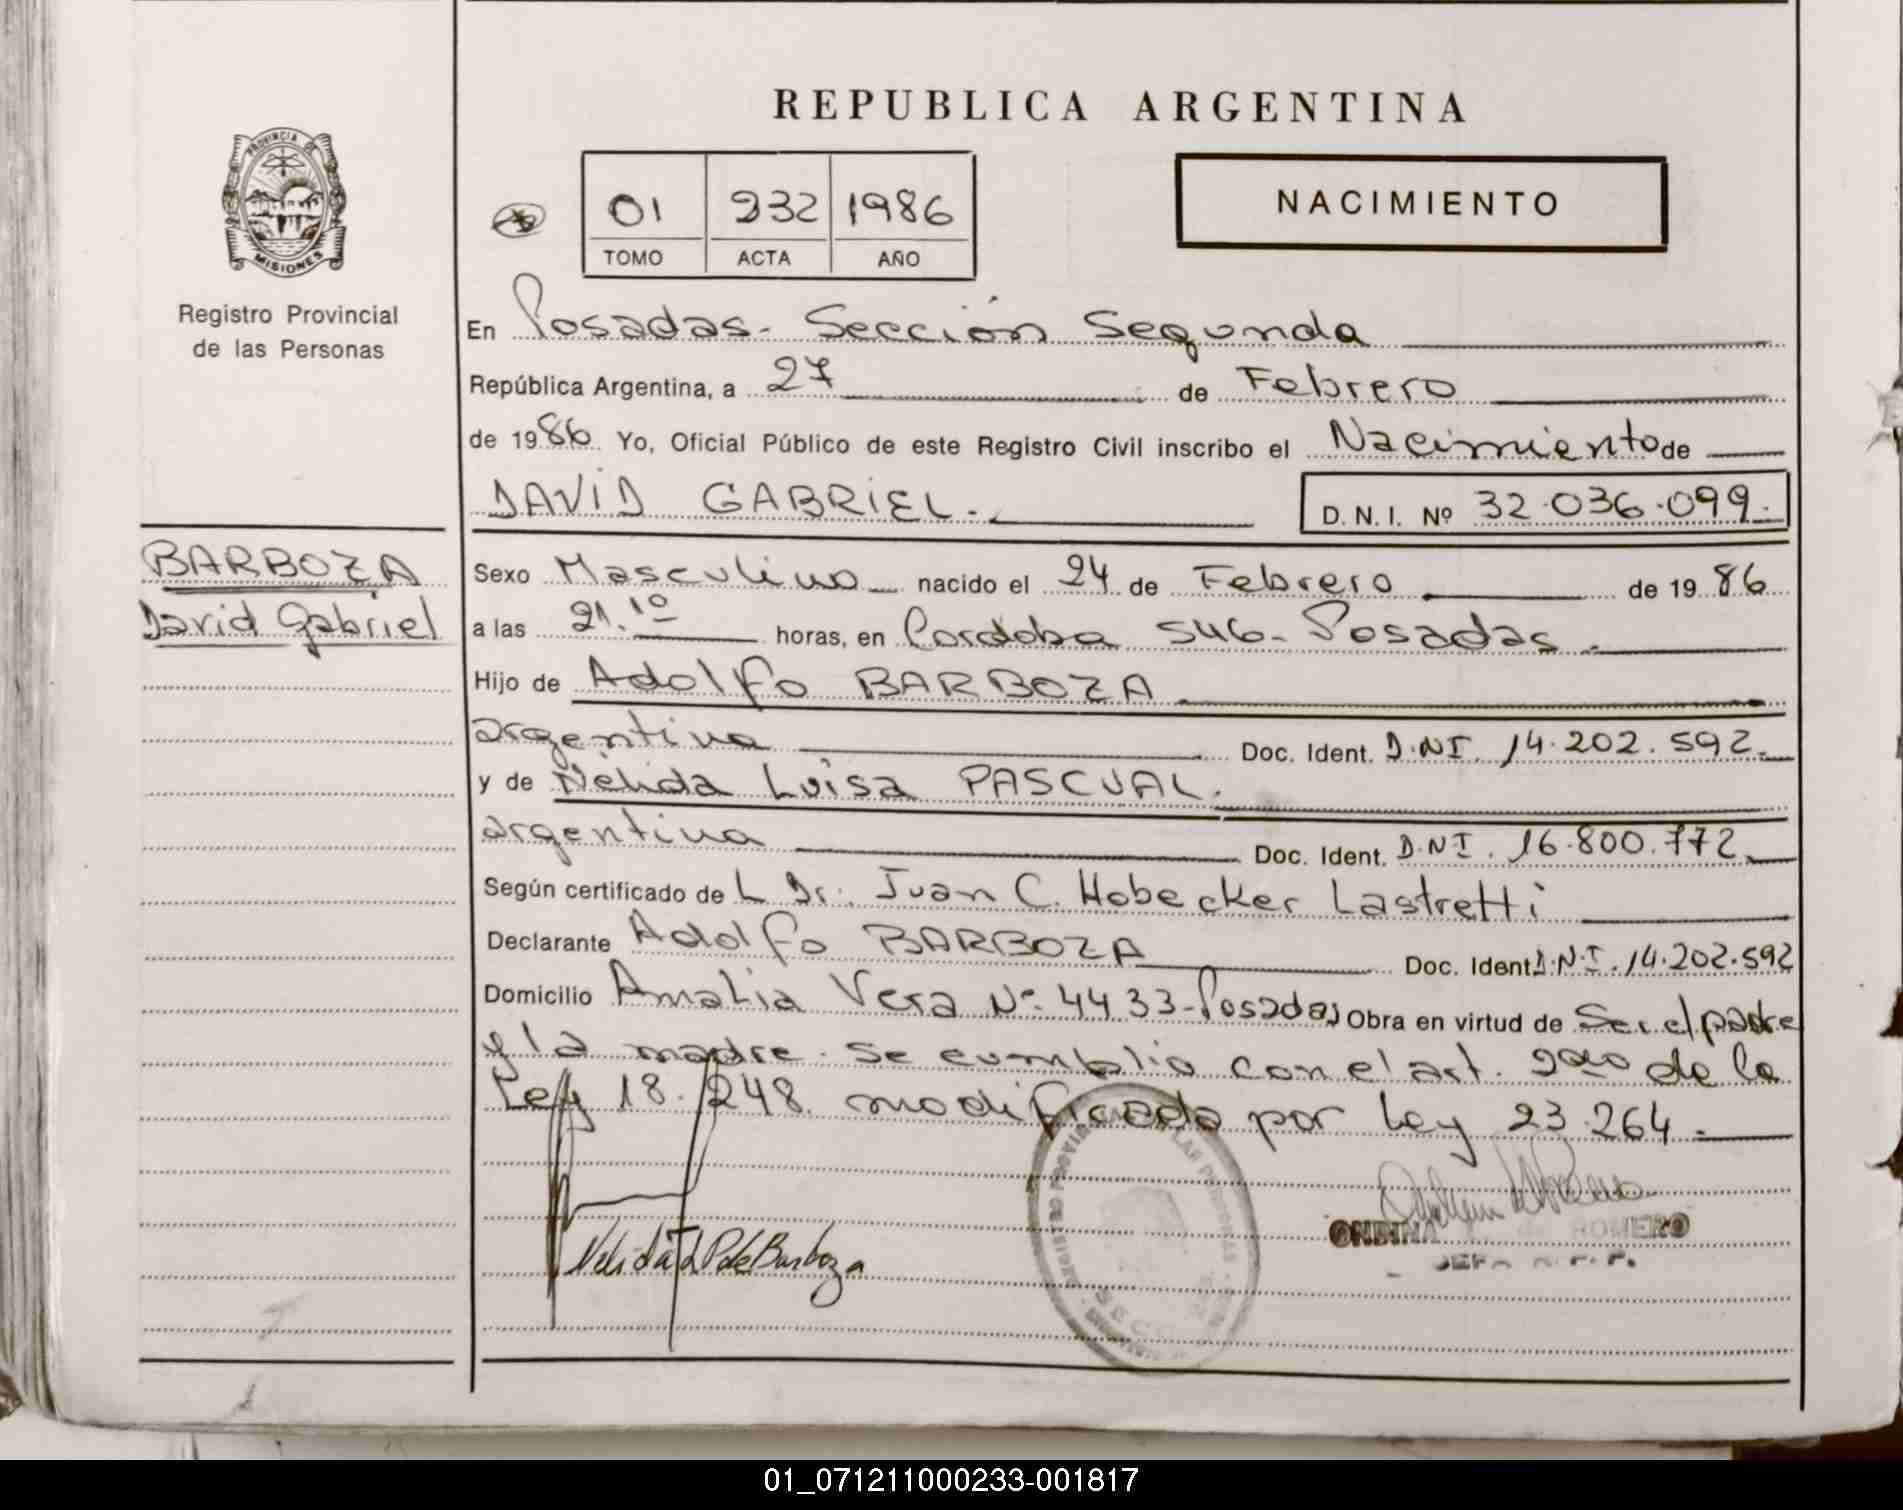 REPUBLICA ARGENTINA
PROVINCIA DE
MISIONES
Registro Provincial
de las Personas
01 232 1986
TOMO ACTA AÑO
NACIMIENTO
En Posadas - Sección Segunda
República Argentina, a 27 de Febrero
de 1986 Yo, Oficial Público de este Registro Civil inscribo el Nacimiento de
DAVID GABRIEL. D. N. I. Nº 32.036.099.
BARBOZA
David Gabriel
Sexo Masculino nacido el 24 de Febrero de 1986
a las 21.10 horas, en Cordoba 546 - Posadas.
Hijo de Adolfo BARBOZA
argentina Doc. Ident. D.N.I. 14.202.592.
y de Nélida Luisa PASCUAL.
argentina Doc. Ident. D.N.I. 16.800.772.
Según certificado de L Dr. Juan C. Hobecker Lastretti
Declarante Adolfo BARBOZA Doc. Ident. D.N.I. 14.202.592
Domicilio Amalia Vera Nº 4433 - Posadas Obra en virtud de Ser el padre
y la madre. Se cumplio con el art. 2do de la
Ley 18.248 modificada por Ley 23.264.
Nelida L P de Barboza
ONDINA de ROMERO
01_071211000233-001817